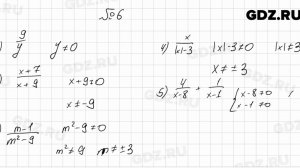 №6
GDZ.RU
) 9/y y≠0
) x+7/x+9 x+9≠0
x≠-9
) m-1/m²-9 m²-9≠0
m²≠9 m≠±3
4) x/|x|-3 |x|-3≠0 |x|≠3
x≠±3
5) 4/x-8 + 1/x-1 { x-8≠0
x-1≠0
GDZ.RU